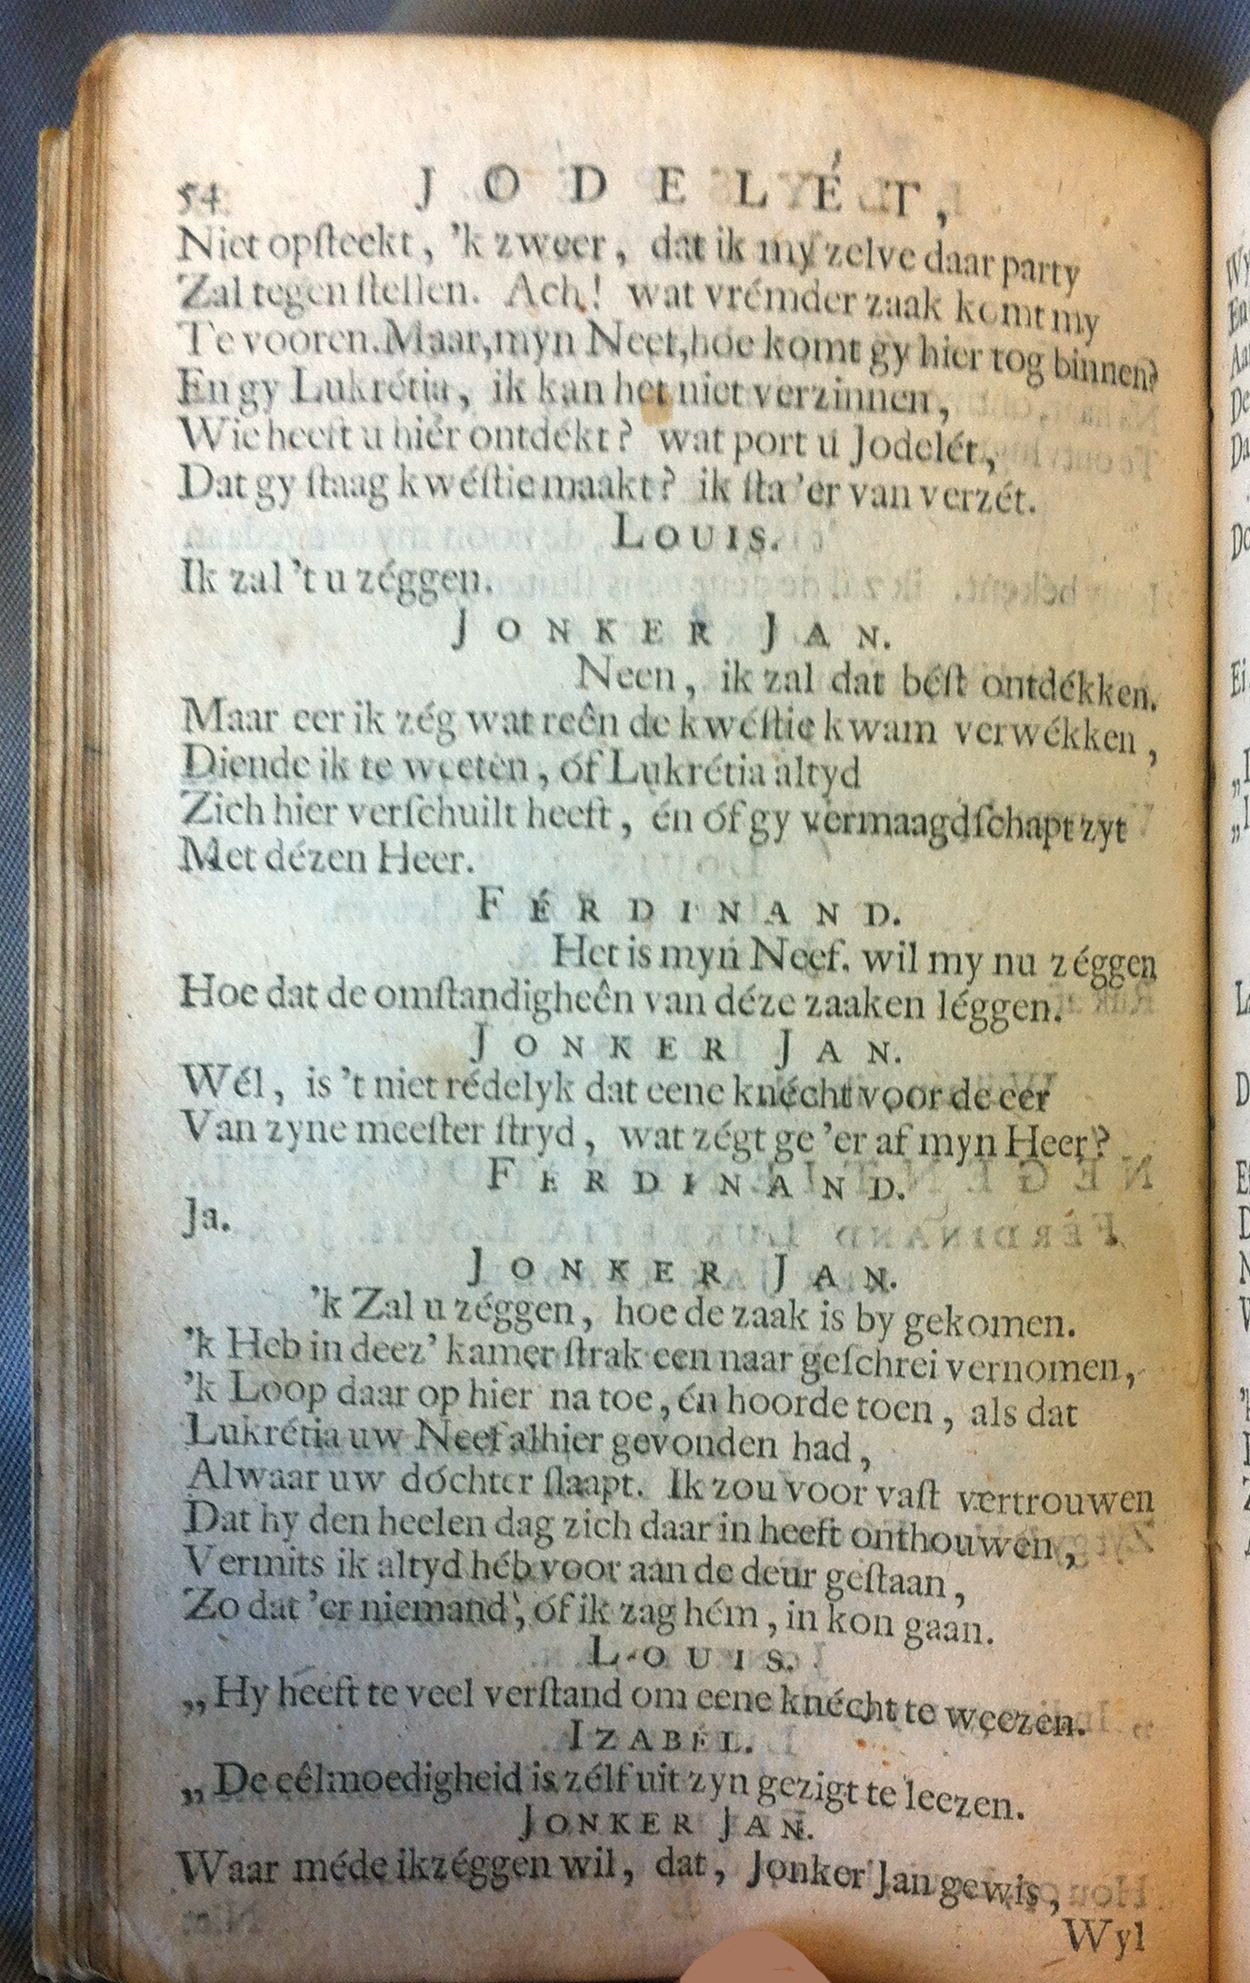 54 JODELÉT,
Niet opſteekt, 'k zweer, dat ik my zelve daar party
Zal tegen ſtellen. Ach! wat vrémder zaak komt my
Te vooren. Maar, myn Neef, hoe komt gy hier tog binnen?
En gy Lukrétia, ik kan het niet verzinnen,
Wie heeft u hiér ontdékt? wat port u Jodelét,
Dat gy ſtaag kwéſtie maakt? ik ſta 'er van verzét.
LOUIS.
Ik zal 't u zéggen.
JONKER JAN.
Neen, ik zal dat béſt ontdékken.
Maar eer ik zég wat reên de kwéſtie kwam verwékken,
Diende ik te weeten, óf Lukrétia altyd
Zich hier verſchuilt heeft, én óf gy vermaagdſchapt zyt
Met dézen Heer.
FÉRDINAND.
Het is myn Neef. wil my nu zéggen
Hoe dat de omſtandigheên van déze zaaken léggen.
JONKER JAN.
Wél, is 't niet rédelyk dat eene knécht voor de eer
Van zyne meeſter ſtryd, wat zégt ge 'er af myn Heer?
FERDINAND.
Ja.
JONKER JAN.
'k Zal u zéggen, hoe de zaak is by gekomen.
'k Heb in deez' kamer ſtrak een naar geſchrei vernomen,
'k Loop daar op hier na toe, én hoorde toen, als dat
Lukrétia uw Neef alhier gevonden had,
Alwaar uw dóchter ſlaapt. Ik zou voor vaſt vertrouwen
Dat hy den heelen dag zich daar in heeft onthouwen,
Vermits ik altyd héb voor aan de deur geſtaan,
Zo dat 'er niemand, óf ik zag hém, in kon gaan.
LOUIS.
„Hy heeft te veel verſtand om eene knécht te weezen.
IZABÉL.
„De eêlmoedigheid is zélf uit zyn gezigt te leezen.
JONKER JAN.
Waar méde ik zéggen wil, dat, Jonker Jan gewis,
Wyl